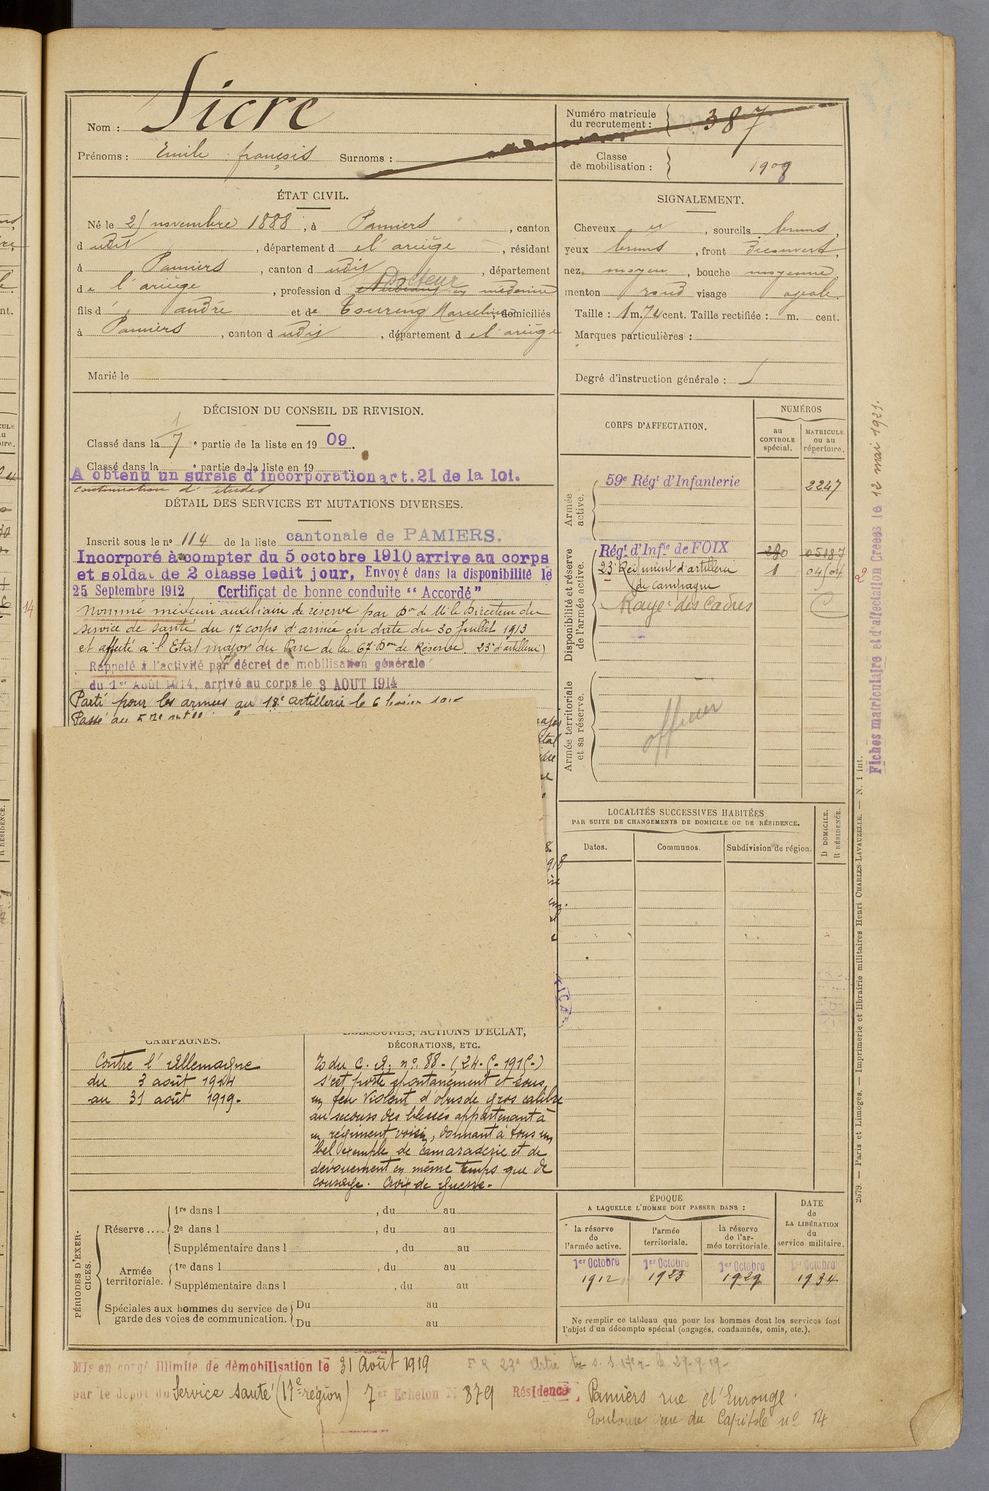 Nom : Sicre
Prénoms : Emile françois Surnoms :
Numéro matricule du recrutement : 387
Classe de mobilisation : 1908
ÉTAT CIVIL.
Né le 21 novembre 1888, à Pamiers, canton
d udit, département d el'ariège, résidant
à Pamiers, canton d udit, département
d e l'ariège, profession d Docteur en médecine
fils d' andré et de Marceline, domiciliés
à Pamiers, canton d udit, département d el'ariège
Marié le
SIGNALEMENT.
Cheveux et, sourcils bruns,
yeux bruns, front découvert,
nez moyen, bouche moyenne,
menton rond visage ovale.
Taille : 1 m. 72 cent. Taille rectifiée : m. cent.
Marques particulières :
Degré d'instruction générale : 5
DÉCISION DU CONSEIL DE REVISION.
Classé dans la 7e partie de la liste en 1909.
Classé dans la e partie de la liste en 19
A obtenu un sursis d'incorporation art. 21 de la loi.
continuation d'études
DÉTAIL DES SERVICES ET MUTATIONS DIVERSES.
Inscrit sous le n° 114 de la liste cantonale de PAMIERS.
Incorporé à compter du 5 octobre 1910 arrivé au corps
et soldat de 2 classe ledit jour, Envoyé dans la disponibilité le
25 Septembre 1912 Certificat de bonne conduite "Accordé"
Nommé médecin auxiliaire de réserve par Don de Mr le Directeur du
service de santé du 17 corps d'armée en date du 30 Juillet 1913
et affecté à l'Etat major du Parc de la 67 Don de Réserve. 23e d'artillerie)
Rappelé à l'activité par décret de mobilisation générale
du 1er Août 1914, arrivé au corps le 3 AOUT 1914
Parti pour les armées au 18e artillerie le 6
Passé au
CORPS D'AFFECTATION.
NUMÉROS
au CONTROLE spécial.
MATRICULE ou au répertoire.
Armée active.
59e Régt d'Infanterie 2247
Disponibilité et réserve de l'armée active.
Régt. d'Infie de FOIX 280 05187
23e Régiment d'artillerie 1 04/04
de campagne
Rayé des Cadres
Armée territoriale et sa réserve.
officier
Fiches matriculaire et d'affectation Créées le 12 mai 1921.
LOCALITÉS SUCCESSIVES HABITÉES
PAR SUITE DE CHANGEMENTS DE DOMICILE OU DE RÉSIDENCE.
Dates. Communes. Subdivision de région. D DOMICILE. R RÉSIDENCE.
2079. — Paris et Limoges. — Imprimerie et librairie militaires Henri CHARLES-LAVAUZELLE. — N. 1 int.
CAMPAGNES.
Contre l'Allemagne
du 3 août 1914
au 31 août 1919.
BLESSURES, ACTIONS D'ÉCLAT,
DÉCORATIONS, ETC.
O du C. A. n° 88 - (24-5-1915-)
s'est porté spontanément et sous
un feu violent d'obus de gros calibre
au secours des blessés appartenant à
un régiment voisin, donnant à tous un
bel exemple de camaraderie et de
dévouement en même temps que de
courage. Croix de guerre.
PÉRIODES D'EXERCICES.
Réserve.... 1re dans l , du au
2e dans l , du au
Supplémentaire dans l , du au
Armée territoriale. 1re dans l , du au
Supplémentaire dans l , du au
Spéciales aux hommes du service de garde des voies de communication. Du au
Du au
ÉPOQUE
A LAQUELLE L'HOMME DOIT PASSER DANS :
la réserve de l'armée active. l'armée territoriale. la réserve de l'armée territoriale.
DATE de LA LIBÉRATION du service militaire.
1er Octobre 1912 1er Octobre 1923 1er Octobre 1929 1er Octobre 1934
Ne remplir ce tableau que pour les hommes dont les services font
l'objet d'un décompte spécial (engagés, condamnés, omis, etc.).
Mis en congé illimité de démobilisation le 31 Août 1919
par le dépôt du Service santé (17e région) 7er Echelon N° 379 Résidence : Pamiers rue d'
Toulouse rue du Capitole n° 14